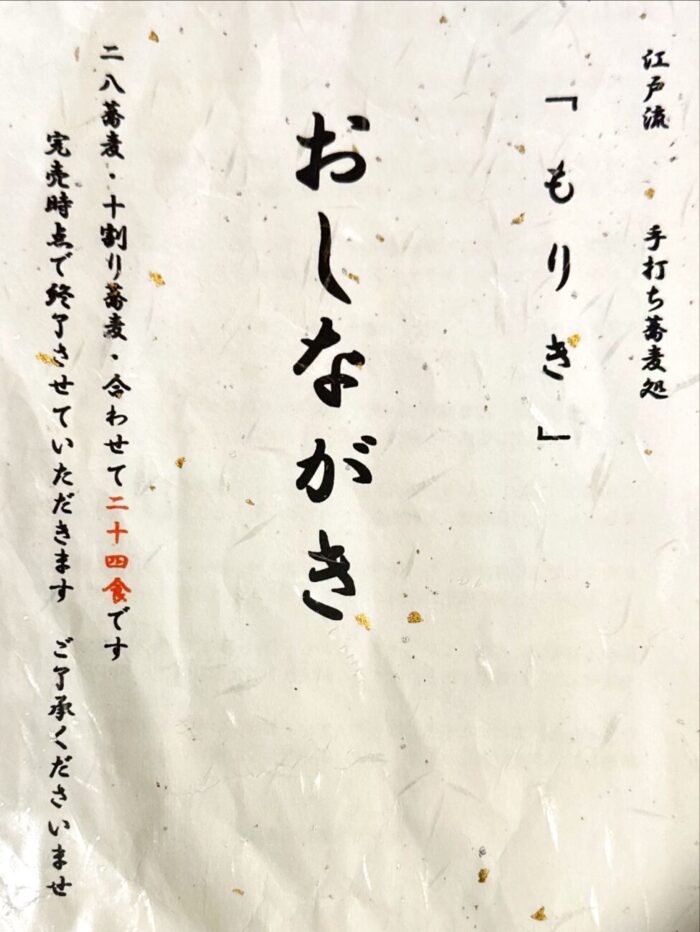 江戸流　手打ち蕎麦処
「もりき」
おしながき
二八蕎麦・十割り蕎麦・合わせて二十四食です
完売時点で終了させていただきます　ご了承くださいませ